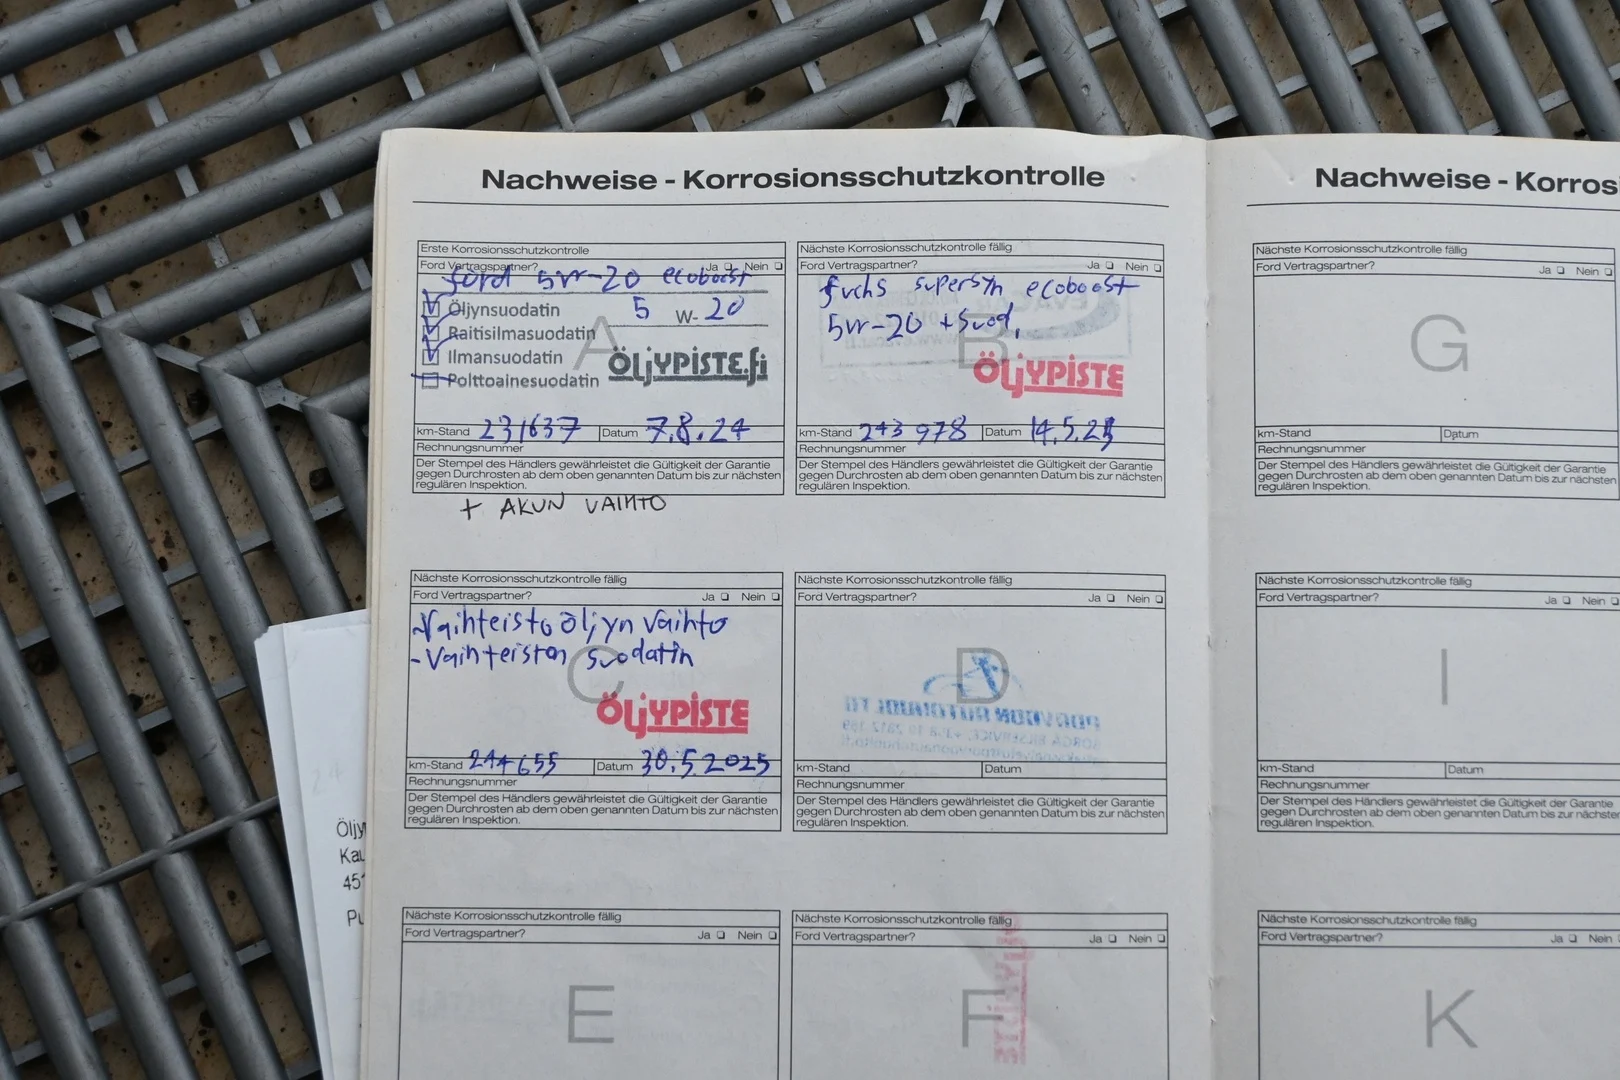 Nachweise - Korrosionsschutzkontrolle
Erste Korrosionsschutzkontrolle
Ford Vertragspartner? Ja Nein
ford 5w-20 ecoboost
Öljynsuodatin 5 W- 20
Raitisilmasuodatin
Ilmansuodatin
Polttoainesuodatin
A
ÖLJYPISTE.fi
km-Stand 231637 Datum 7.8.24
Rechnungsnummer
Der Stempel des Händlers gewährleistet die Gültigkeit der Garantie
gegen Durchrosten ab dem oben genannten Datum bis zur nächsten
regulären Inspektion.
+ AKUN VAIHTO
Nächste Korrosionsschutzkontrolle fällig
Ford Vertragspartner? Ja Nein
fuchs supersyn ecoboost
5w-20 + suod.
B
ÖLJYPISTE
km-Stand 243 978 Datum 14.5.25
Rechnungsnummer
Der Stempel des Händlers gewährleistet die Gültigkeit der Garantie
gegen Durchrosten ab dem oben genannten Datum bis zur nächsten
regulären Inspektion.
Nächste Korrosionsschutzkontrolle fällig
Ford Vertragspartner? Ja Nein
-Vaihteistoöljyn vaihto
-Vaihteiston suodatin
C
ÖLJYPISTE
km-Stand 244655 Datum 30.5.2025
Rechnungsnummer
Der Stempel des Händlers gewährleistet die Gültigkeit der Garantie
gegen Durchrosten ab dem oben genannten Datum bis zur nächsten
regulären Inspektion.
Nächste Korrosionsschutzkontrolle fällig
Ford Vertragspartner? Ja Nein
D
km-Stand Datum
Rechnungsnummer
Der Stempel des Händlers gewährleistet die Gültigkeit der Garantie
gegen Durchrosten ab dem oben genannten Datum bis zur nächsten
regulären Inspektion.
Nächste Korrosionsschutzkontrolle fällig
Ford Vertragspartner? Ja Nein
E
Nächste Korrosionsschutzkontrolle fällig
Ford Vertragspartner? Ja Nein
F
Nachweise - Korros
Nächste Korrosionsschutzkontrolle fällig
Ford Vertragspartner? Ja Nein
G
km-Stand Datum
Rechnungsnummer
Der Stempel des Händlers gewährleistet die Gültigkeit der Garantie
gegen Durchrosten ab dem oben genannten Datum bis zur nächsten
regulären Inspektion.
Nächste Korrosionsschutzkontrolle fällig
Ford Vertragspartner? Ja Nein
I
km-Stand Datum
Rechnungsnummer
Der Stempel des Händlers gewährleistet die Gültigkeit der Garantie
gegen Durchrosten ab dem oben genannten Datum bis zur nächsten
regulären Inspektion.
Nächste Korrosionsschutzkontrolle fällig
Ford Vertragspartner? Ja Nein
K
Öljy
Kau
451
Pu